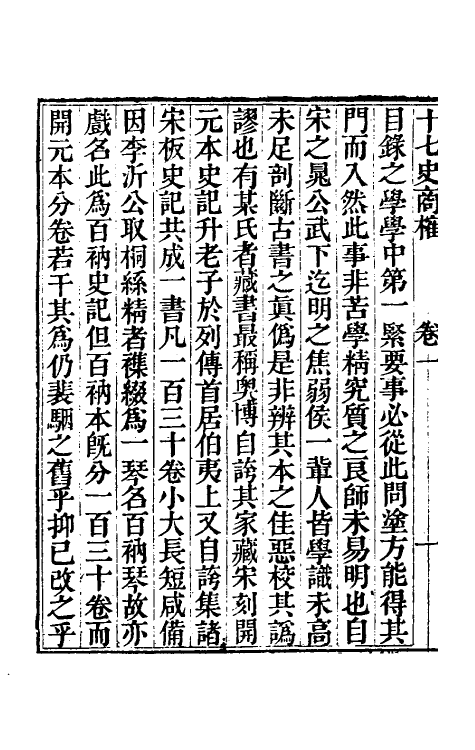 十七史商榷　卷一　一
目錄之學學中第一緊要事必從此問塗方能得其
門而入然此事非苦學精究質之良師未易明也自
宋之晁公武下迄明之焦弱侯一輩人皆學識未高
未足剖斷古書之眞僞是非辨其本之佳惡校其譌
謬也有某氏者藏書最稱奧博自誇其家藏宋刻開
元本史記升老子於列傳首居伯夷上又自誇集諸
宋板史記共成一書凡一百三十卷小大長短咸備
因李沂公取桐絲精者襍綴爲一琴名百衲琴故亦
戲名此爲百衲史記但百衲本旣分一百三十卷而
開元本分卷若干其爲仍裴駰之舊乎抑已改之乎